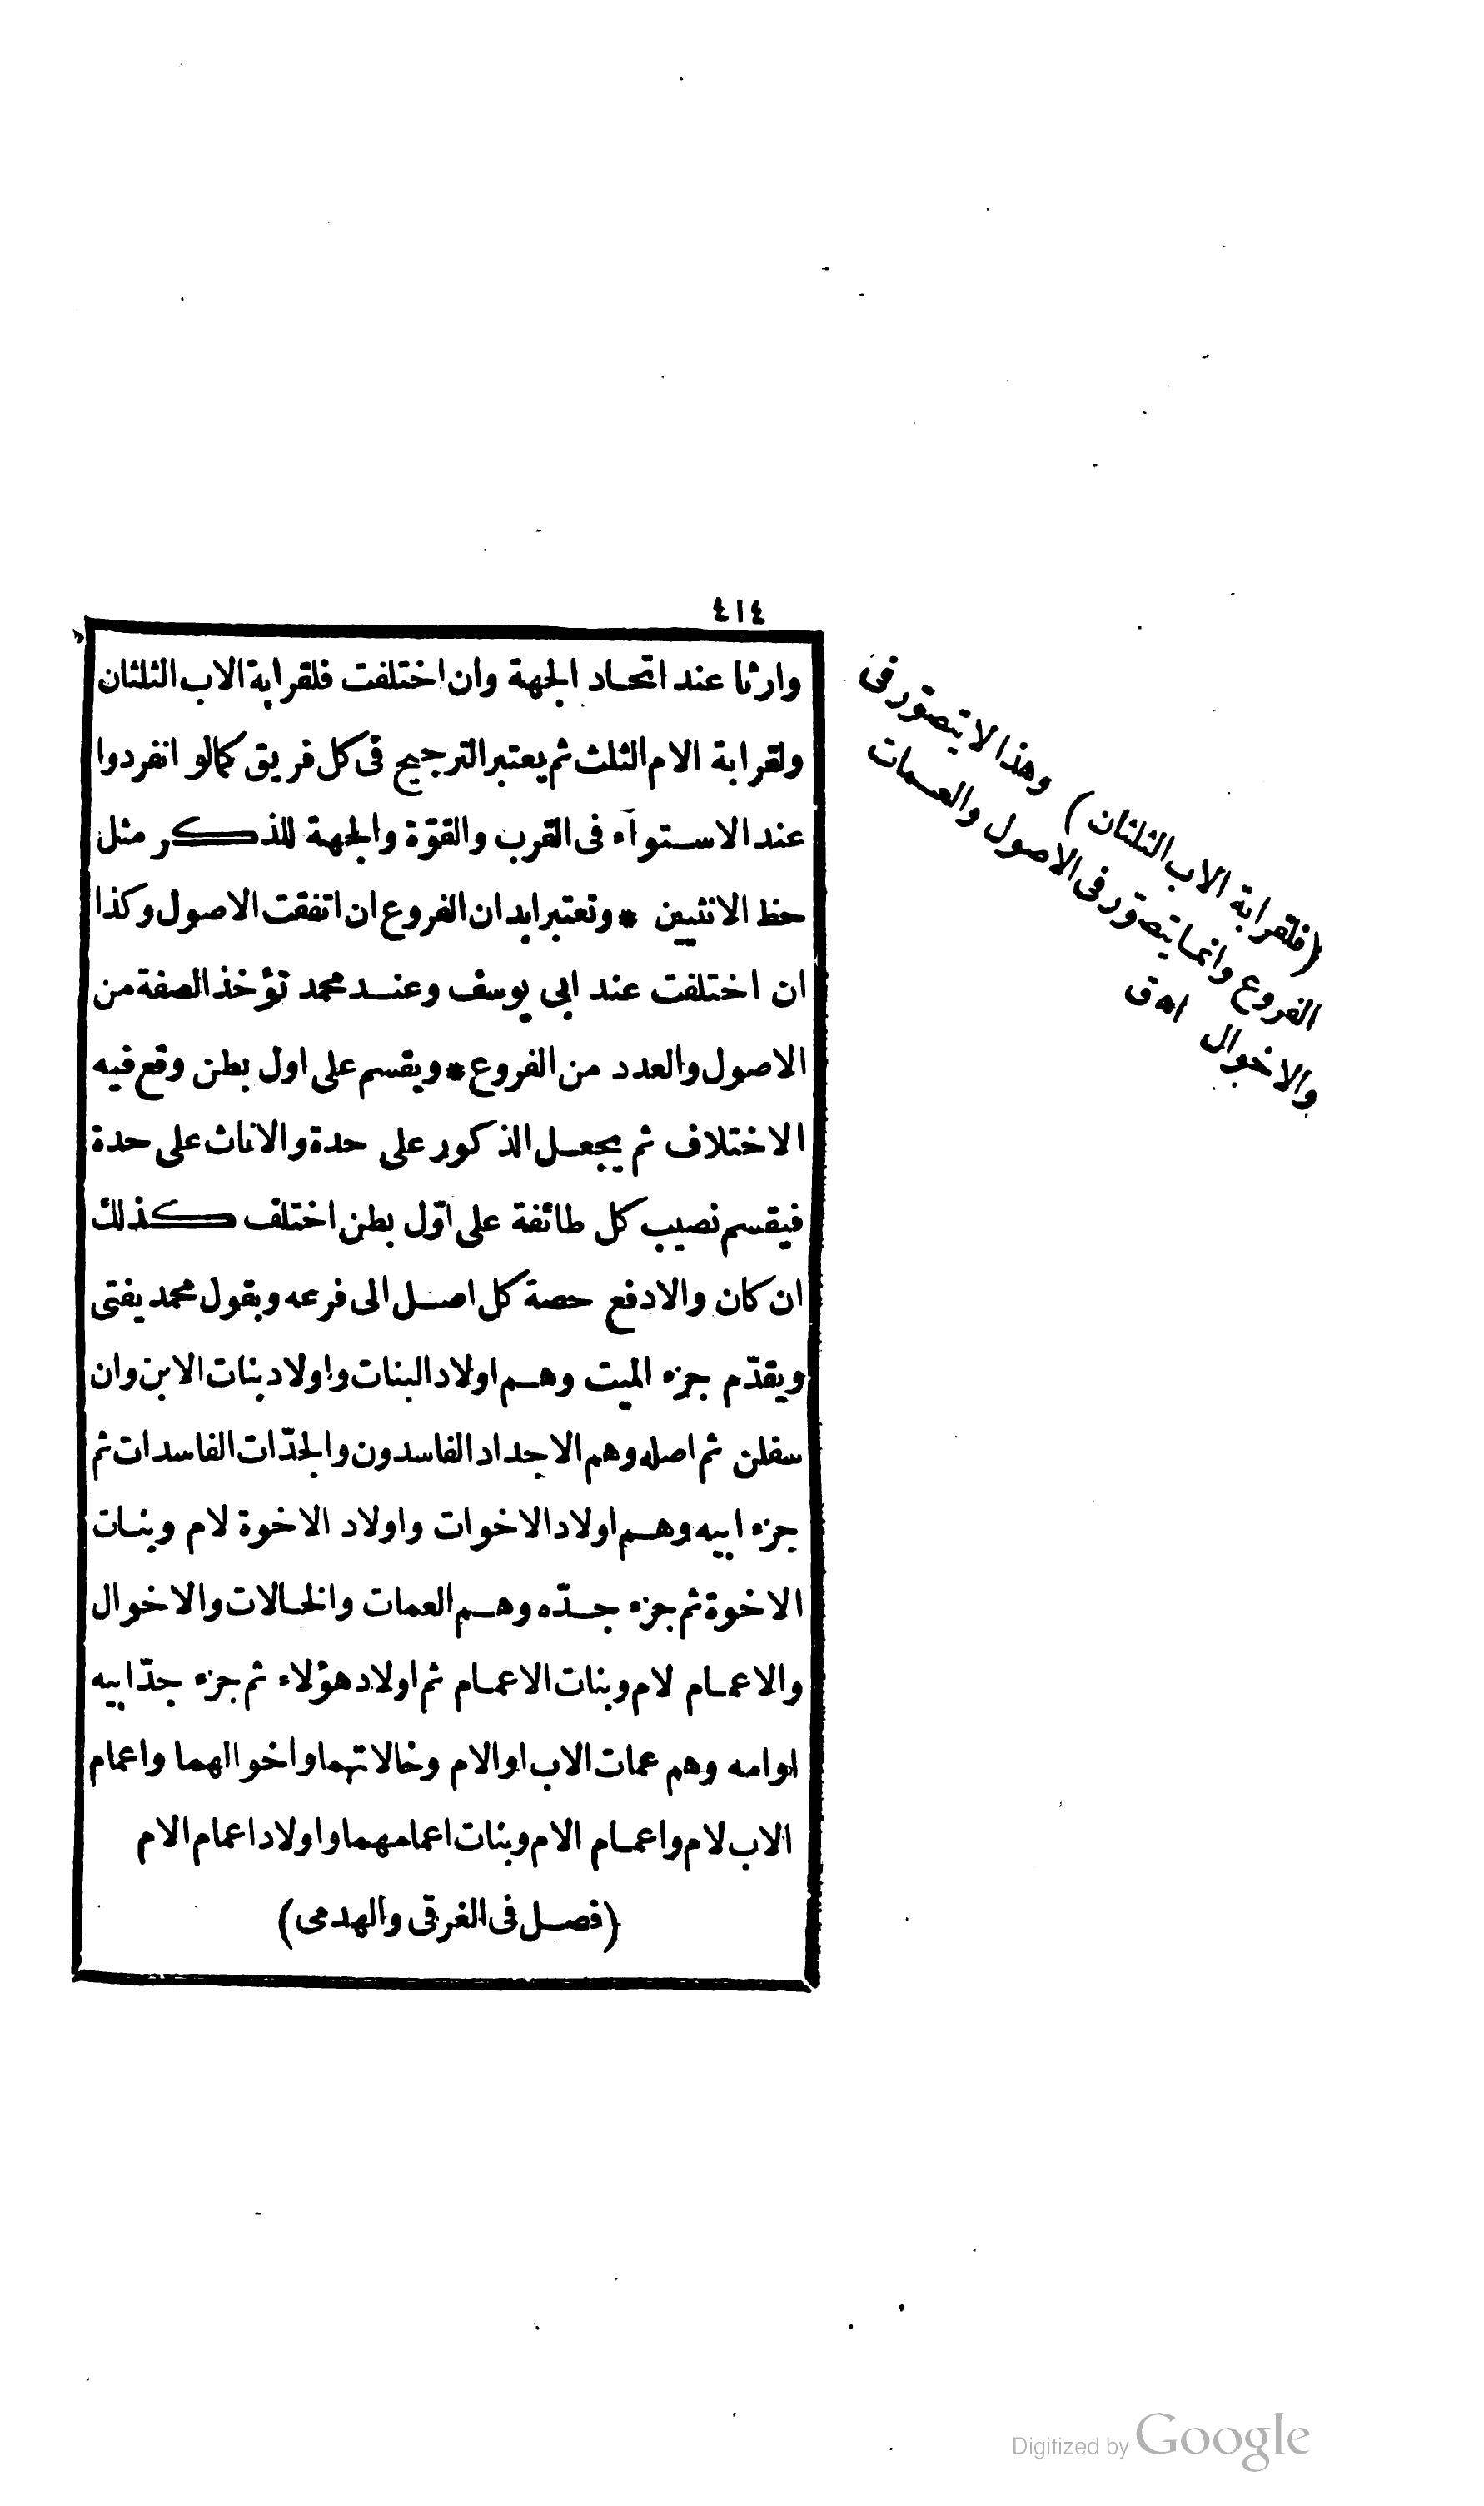 ٤١٤
وارثا عند اتحاد الجهة وان اختلفت فلقرابة الاب الثلثان
ولقرابة الام الثلث ثم يعتبر الترجيح فى كل فريق كمالو انفردوا
عند الاستوآء فى القرب والقوّة والجهة للذكر مثل
حظ الانثيين * وتعتبر ابدان الفروع ان اتفقت الاصول وكذا
ان اختلفت عند ابى يوسف وعند محمد تؤخذ الصفة من
الاصول والعدد من الفروع * ويقسم على اول بطن وقع فيه
الاختلاف ثم يجعل الذكور على حدة والاناث على حدة
فيقسم نصيب كل طائفة على اوّل بطن اختلف كذلك
ان كان والادفع حصة كل اصل الى فرعه وبقول محمد يفتى
ويقدّم جزء الميت وهم اولاد البنات واولاد بنات الابن وان
سفلن ثم اصله وهم الاجداد الفاسدون والجدّات الفاسدات ثم
جزء ابيه وهم اولاد الاخوات واولاد الاخوة لام وبنات
الاخوة ثم جزء جدّه وهم العمات والخالات والاخوال
والاعمام لام وبنات الاعمام ثم اولاد هؤلاء ثم جزء جدّ ابيه
اوامه وهم عمات الاب او الام وخالاتهما واخوالهما واعمام
الاب لام واعمام الام وبنات اعمامهما واولاد اعمام الام
(فصل فى الغرقى والهدمى)
(فلقرابة الاب الثلثان) وهذا لا يتصوّر فى
الفروع وانما يتصوّر فى الاصول والعمات
والاخوال اه ق
Digitized by Google